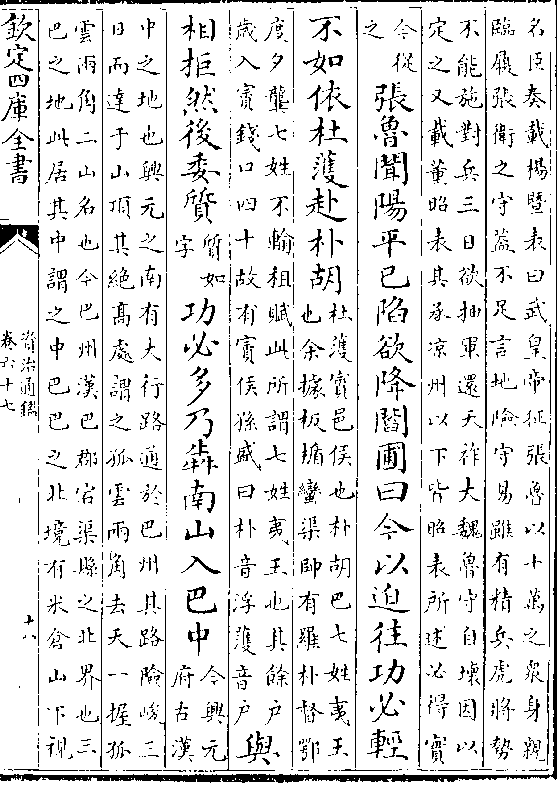 名臣奏載楊暨表曰武皇帝征張魯以十萬之衆身親
臨履張衛之守蓋不足言地險守易雖有精兵虎將勢
不能施對兵三日欲抽軍還天祚大魏魯守自壞因以
定之又載董昭表其承凉州以下皆昭表所述必得實
今從
之
張魯聞陽平已陷欲降閻圃曰今以迫往功必輕
不如依杜濩赴朴胡
杜濩賨邑侯也朴胡巴七姓夷王
也余據板楯蠻渠帥有羅朴督鄂
度夕龔七姓不輸租賦此所謂七姓夷王也其餘戶
歲入賨錢口四十故有賨侯孫盛曰朴音浮濩音戶
與
相拒然後委質
質如
字
功必多乃犇南山入巴中
今興元
府古漢
中之地也興元之南有大行路通於巴州其路險峻三
日而達于山頂其絶高處謂之孤雲兩角去天一握孤
雲兩角二山名也今巴州漢巴郡宕渠縣之北界也三
巴之地此居其中謂之中巴巴之北境有米倉山下視
欽定四庫全書
資治通鑑
卷六十七
十八